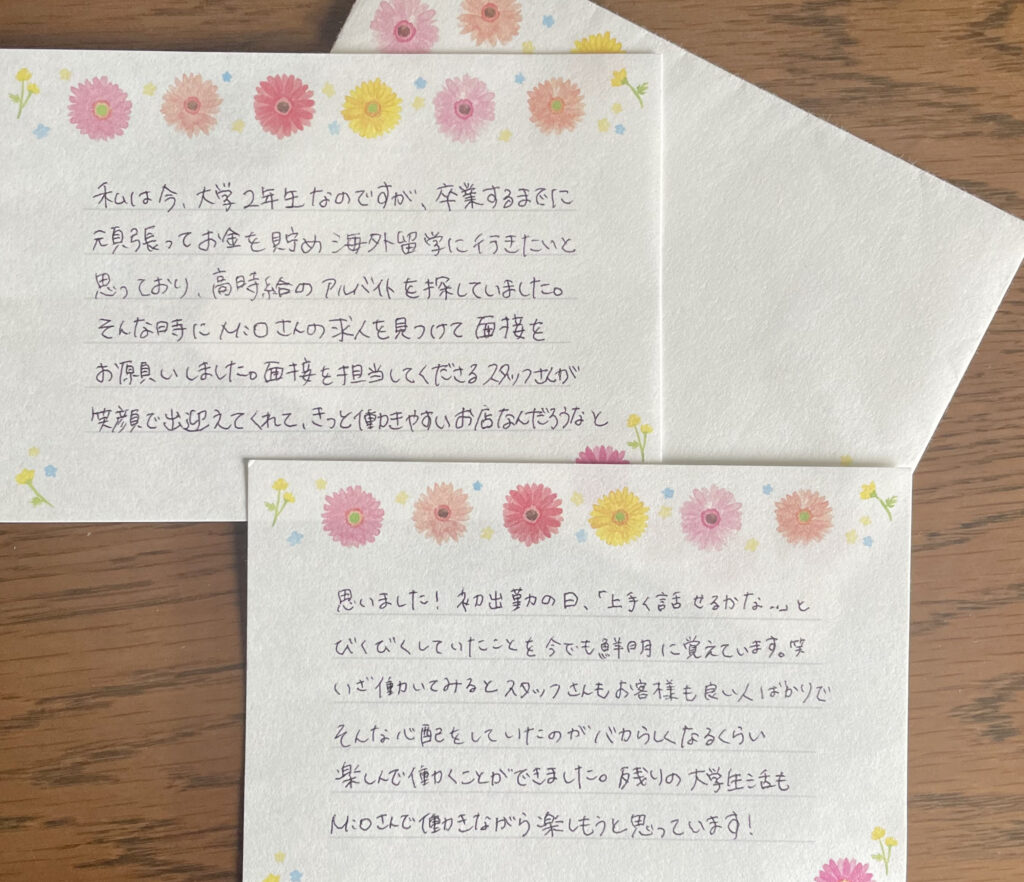 私は今、大学2年生なのですが、卒業するまでに
頑張ってお金を貯め海外留学に行きたいと
思っており、高時給のアルバイトを探していました。
そんな時にMiOさんの求人を見つけて面接を
お願いしました。面接を担当してくださるスタッフさんが
笑顔で出迎えてくれて、きっと働きやすいお店なんだろうなと
思いました!初出勤の日、「上手く話せるかな...」と
びくびくしていたことを今でも鮮明に覚えています。笑
いざ働いてみるとスタッフさんもお客様も良い人ばかりで
そんな心配をしていたのがバカらしくなるくらい
楽しんで働くことができました。残りの大学生活も
MiOさんで働きながら楽しもうと思っています!